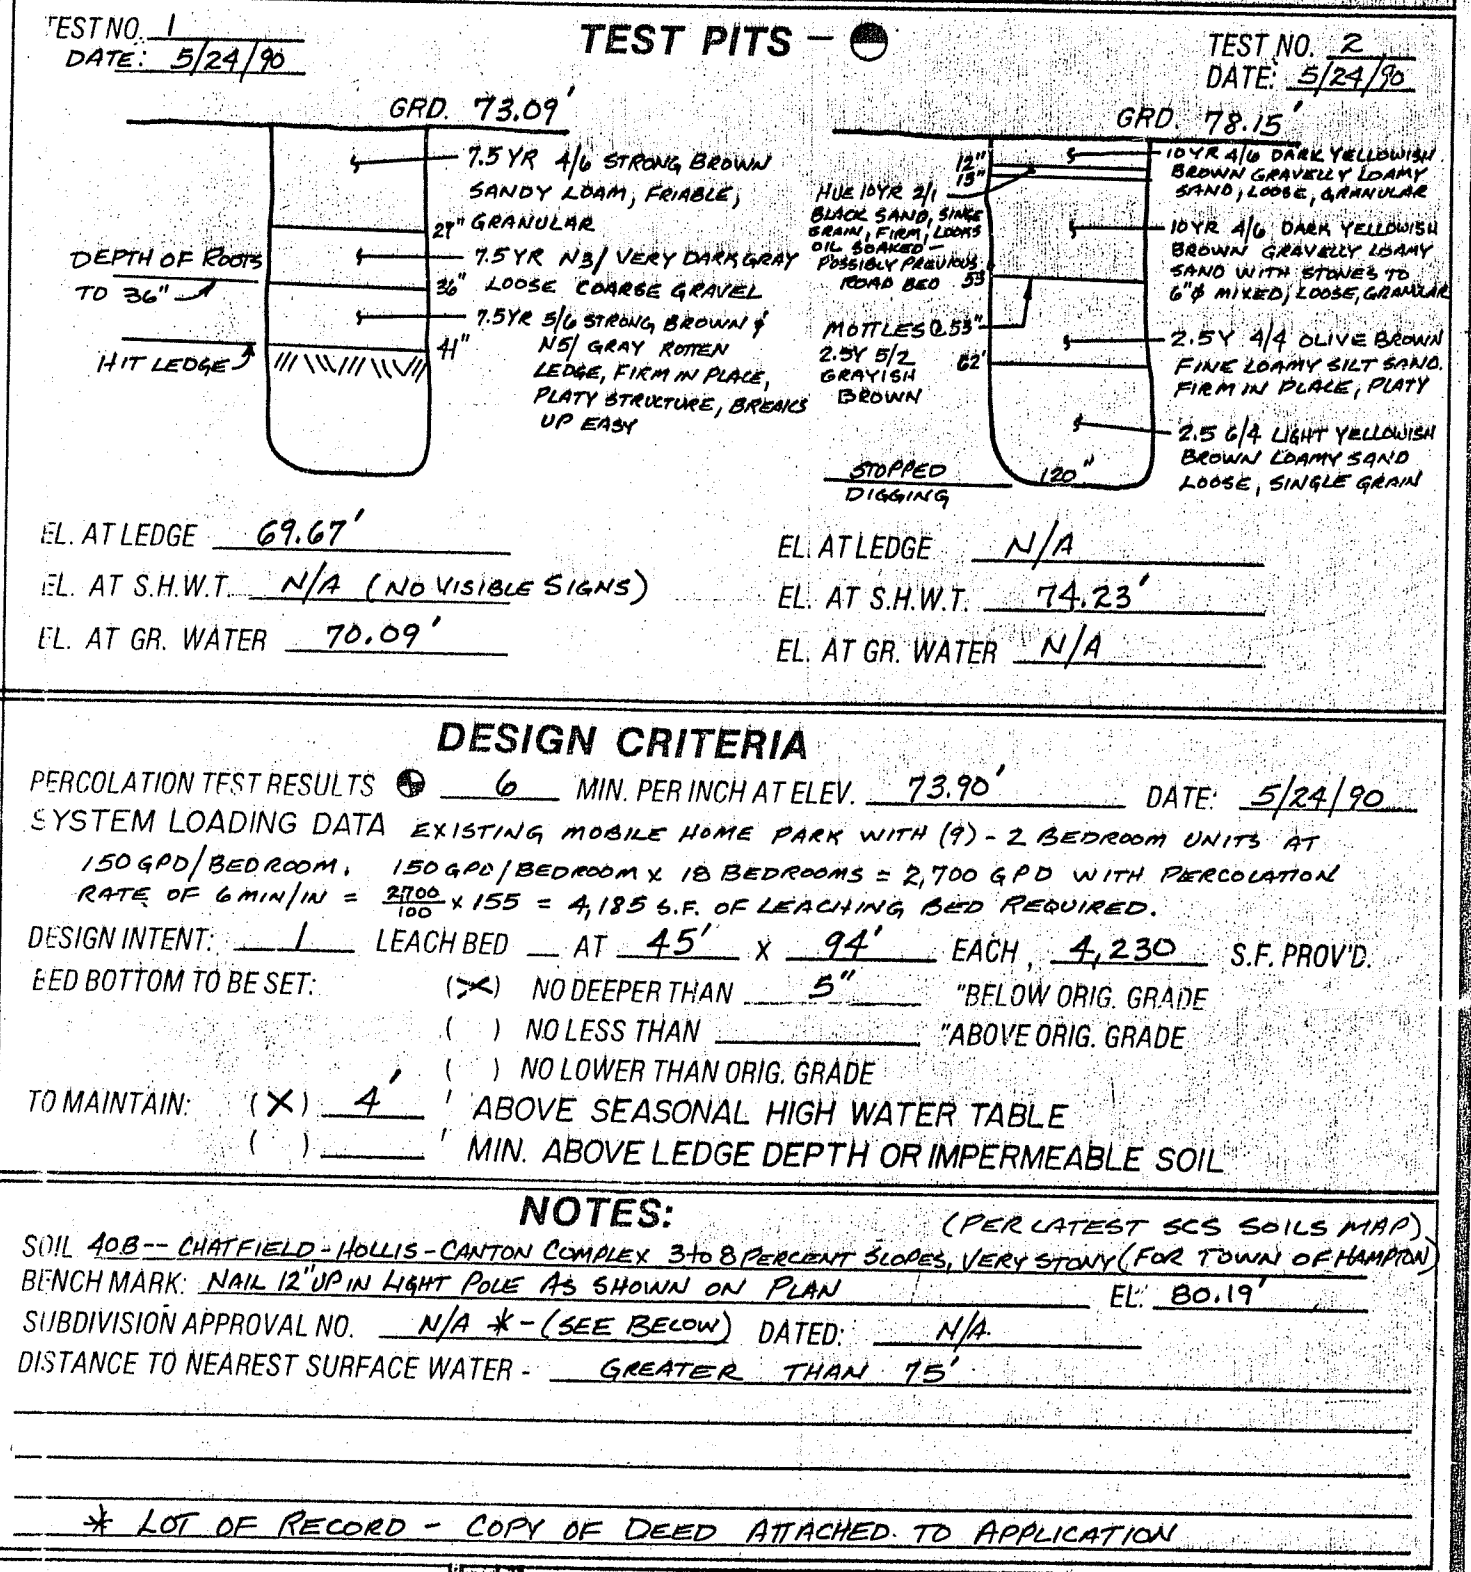 TEST NO. 1
DATE: 5/24/90
TEST PITS –
TEST NO. 2
DATE: 5/24/90
GRD. 73.09'
7.5 YR 4/6 STRONG BROWN
SANDY LOAM, FRIABLE,
GRANULAR
7.5 YR N3/ VERY DARK GRAY
36" LOOSE COARSE GRAVEL
7.5YR 5/6 STRONG BROWN &
41" N5/ GRAY ROTTEN
LEDGE, FIRM IN PLACE,
PLATY STRUCTURE, BREAKS
UP EASY
DEPTH OF ROOTS
TO 36"
HIT LEDGE
GRD. 78.15'
12"
15"
HUE 10YR 2/1
BLACK SAND, SINGE
GRAIN, FIRM, LOOKS
OIL SOAKED –
POSSIBLY PREVIOUS
ROAD BED 53
MOTTLES @ 53"
2.5Y 5/2
GRAYISH
BROWN
62"
STOPPED
DIGGING
120"
10YR 4/6 DARK YELLOWISH
BROWN GRAVELLY LOAMY
SAND, LOOSE, GRANULAR
10YR 4/6 DARK YELLOWISH
BROWN GRAVELLY LOAMY
SAND WITH STONES TO
6"ϕ MIXED, LOOSE, GRANULAR
2.5Y 4/4 OLIVE BROWN
FINE LOAMY SILT SAND.
FIRM IN PLACE, PLATY
2.5 6/4 LIGHT YELLOWISH
BROWN LOAMY SAND
LOOSE, SINGLE GRAIN
EL. AT LEDGE 69.67'
EL. AT S.H.W.T. N/A (NO VISIBLE SIGNS)
EL. AT GR. WATER 70.09'
EL. AT LEDGE N/A
EL. AT S.H.W.T. 74.23'
EL. AT GR. WATER N/A
DESIGN CRITERIA
PERCOLATION TEST RESULTS 6 MIN. PER INCH AT ELEV. 73.90' DATE: 5/24/90
SYSTEM LOADING DATA EXISTING MOBILE HOME PARK WITH (9) - 2 BEDROOM UNITS AT
150 GPD/BEDROOM. 150 GPD/BEDROOM X 18 BEDROOMS = 2,700 GPD WITH PERCOLATION
RATE OF 6 MIN/IN = 2700/100 X 155 = 4,185 S.F. OF LEACHING BED REQUIRED.
DESIGN INTENT: 1 LEACH BED AT 45' X 94' EACH, 4,230 S.F. PROV'D.
BED BOTTOM TO BE SET: (X) NO DEEPER THAN 5" "BELOW ORIG. GRADE
( ) NO LESS THAN "ABOVE ORIG. GRADE
( ) NO LOWER THAN ORIG. GRADE
TO MAINTAIN: (X) 4' ' ABOVE SEASONAL HIGH WATER TABLE
( ) ' MIN. ABOVE LEDGE DEPTH OR IMPERMEABLE SOIL
NOTES:
(PER LATEST SCS SOILS MAP)
SOIL 40B -- CHATFIELD - HOLLIS - CANTON COMPLEX 3 to 8 PERCENT SLOPES, VERY STONY (FOR TOWN OF HAMPTON)
BENCH MARK: NAIL 12" UP IN LIGHT POLE AS SHOWN ON PLAN EL: 80.19'
SUBDIVISION APPROVAL NO. N/A * - (SEE BELOW) DATED: N/A
DISTANCE TO NEAREST SURFACE WATER - GREATER THAN 75'
* LOT OF RECORD - COPY OF DEED ATTACHED TO APPLICATION